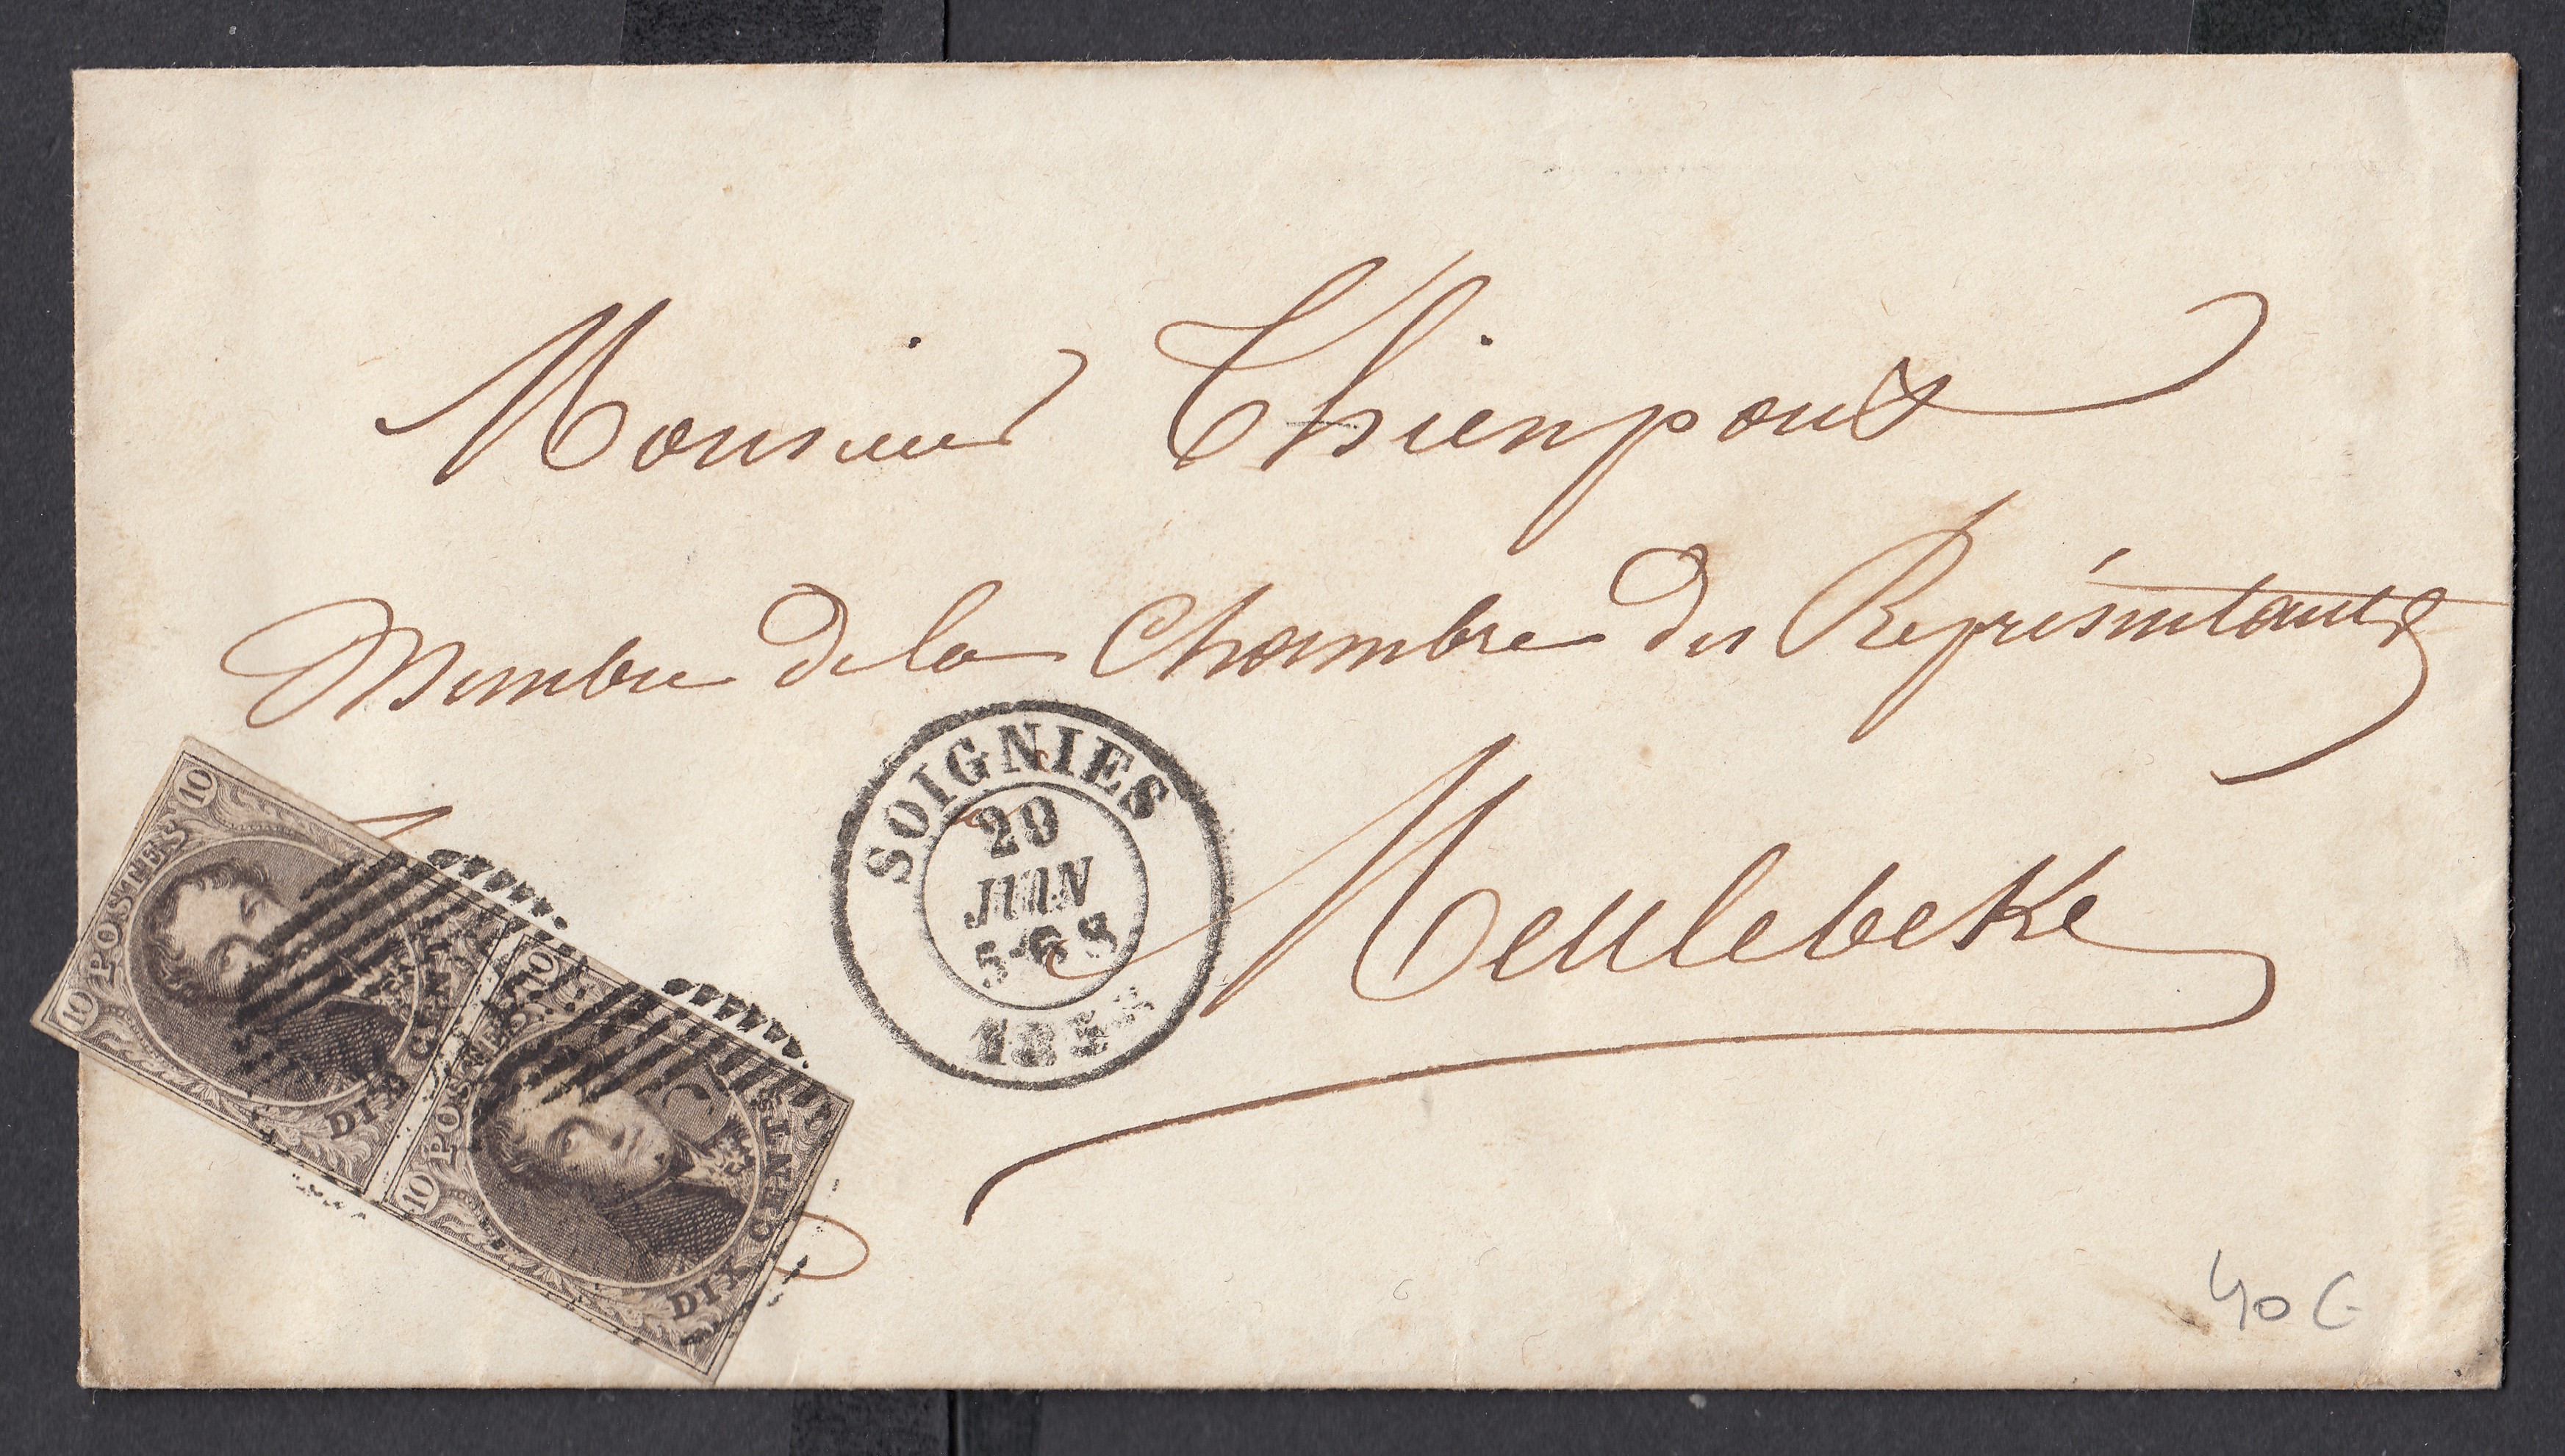 Monsieur Thienpont
Membre de la Chambre des Représentants
Meulebeke
SOIGNIES
29
JUIN
5-6 S
185
10
POSTES
10
DIX CENTS
10
POSTES
10
DIX CENTS
40 €